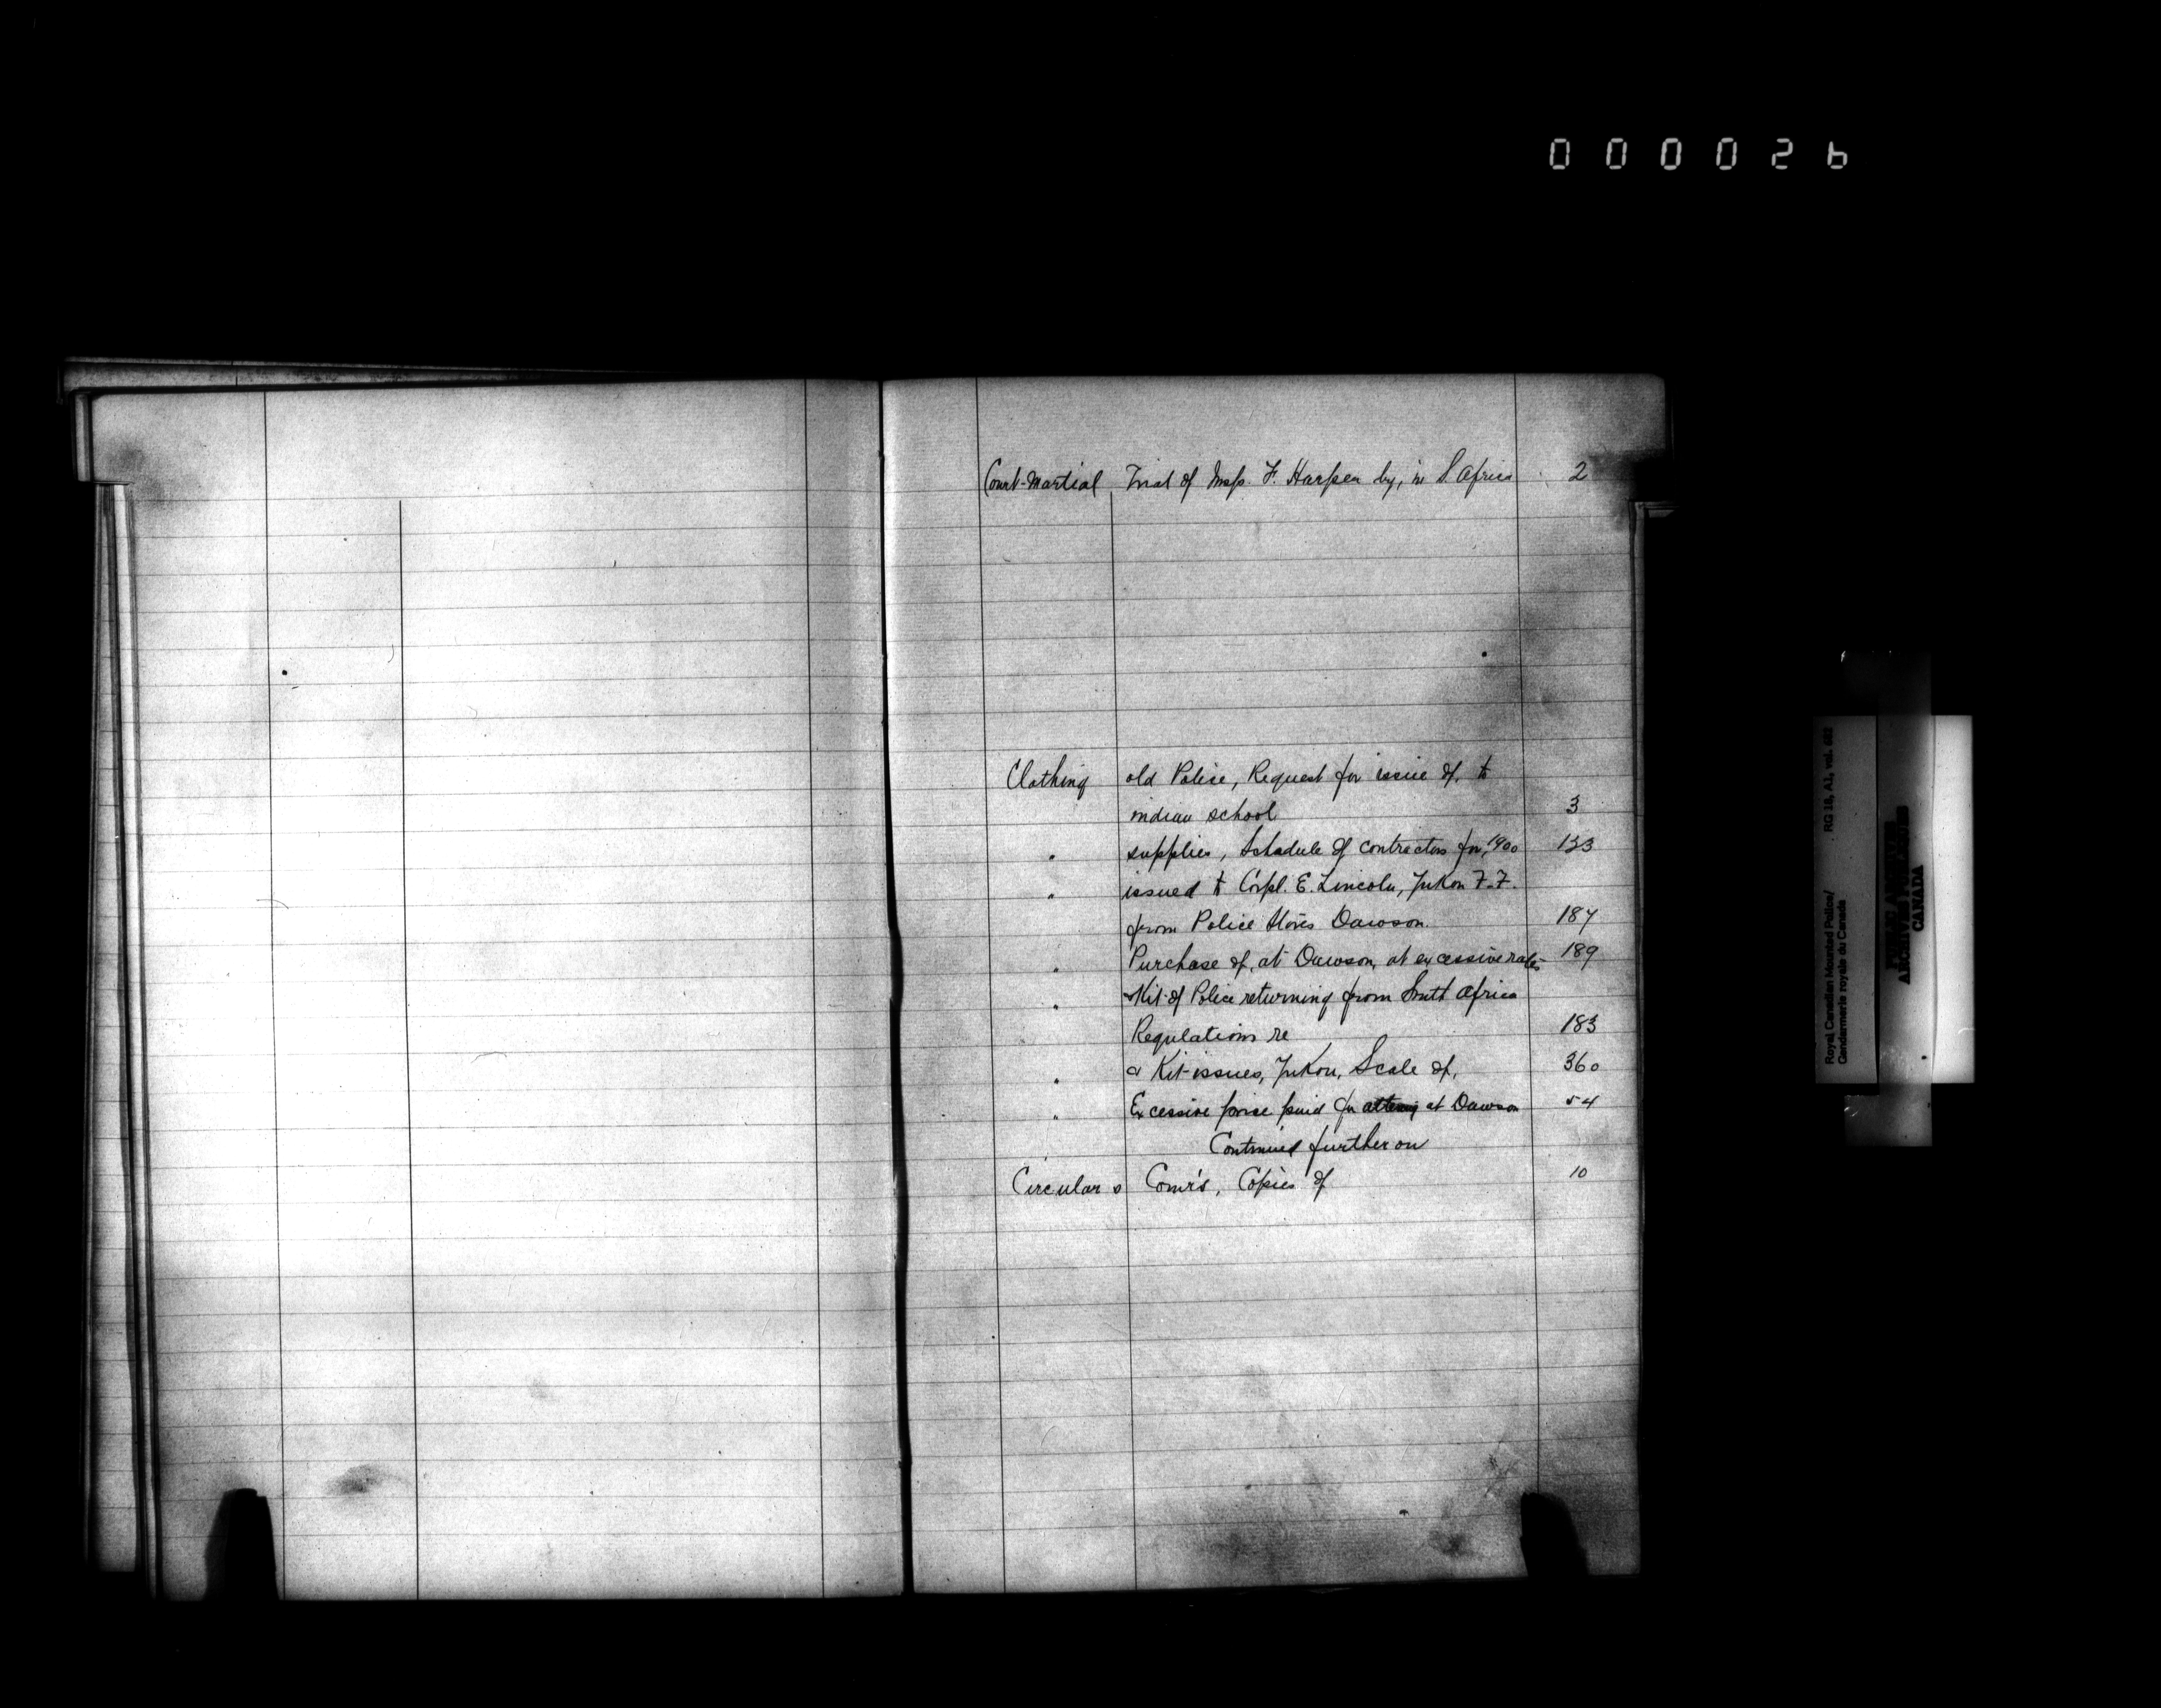 000026
Court-Martial Trial of Insp. F. Harper by, in S. Africa 2
Clothing old Police, Request for issue of, to
indian school 3
" supplies, Schedule of contractors for, 1900 133
" issued to Corpl. E. Lincoln, Yukon F.F.
from Police Stores Dawson. 187
" Purchase of, at Dawson, at excessive rates 189
" Kit of Police returning from South Africa
Regulations re 183
" & Kit issues, Yukon, Scale of, 360
" Excessive price paid for at Dawson 54
" Continued further on
Circulars Comr's, Copies of 10
Royal Canadian Mounted Police/ RG 18, A1, vol.
Gendarmerie royale du Canada
PUBLIC ARCHIVES
ARCHIVES PUBLIQUES
CANADA